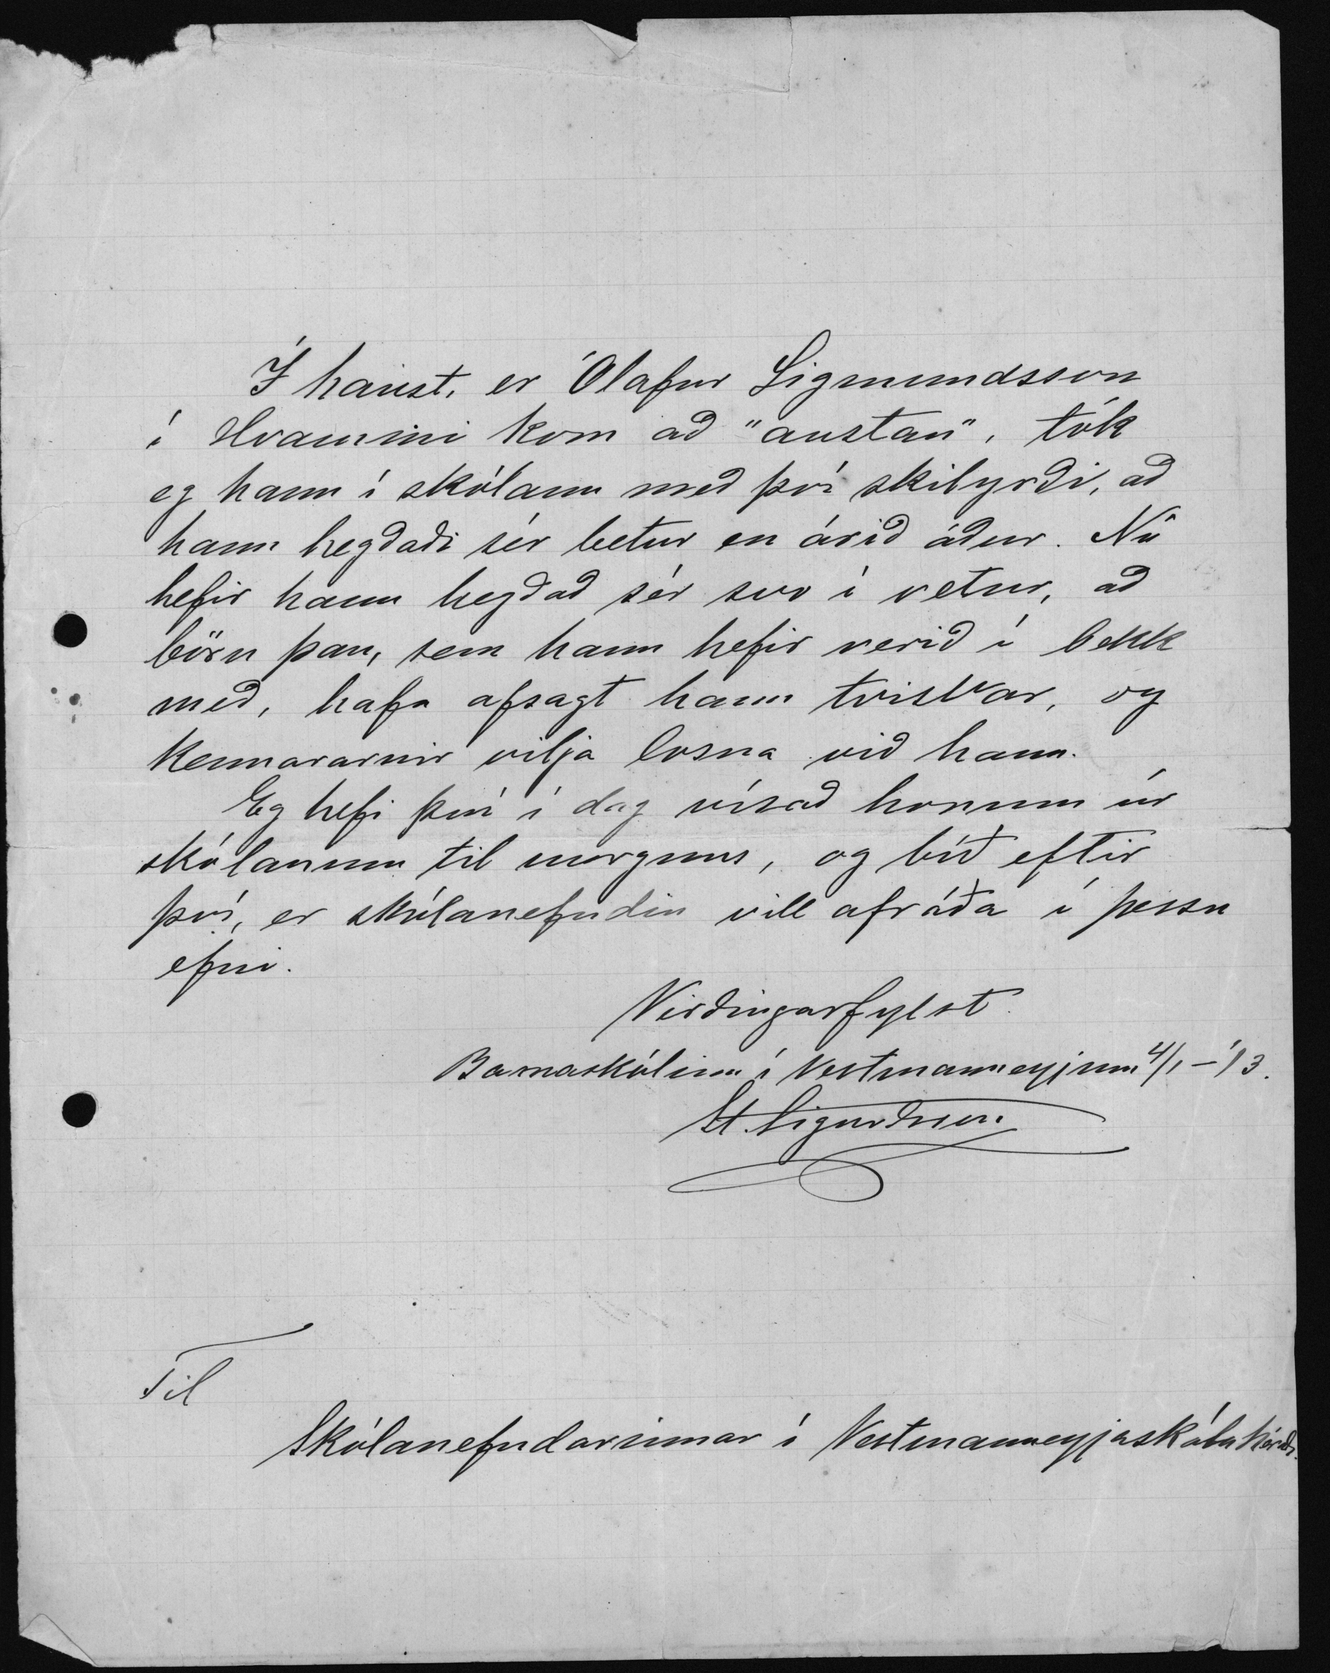 Í haust, er Ólafur Sigmundsson
í Hvammi kom að "austan", tók
eg hann í skólann með því skilyrði, að
hann hegðaði sér betur en árið áður. Nú
hefir hann hegðað sér svo í vetur, að
börn þau, sem hann hefir verið í bekk
með, hafa afsagt hann tvisvar, og
kennararnir vilja losna við hann.
Eg hefi því í dag vísað honum úr
skólanum til morguns, og bíð eftir
því, er skólanefndin vill afráða í þessu
efni.
Virðingarfylst.
Barnaskólinn í Vestmannaeyjum 4/1 - '13.
St. Sigurðsson.
Til
Skólanefndarinnar í Vestmannaeyjaskólahéraði.